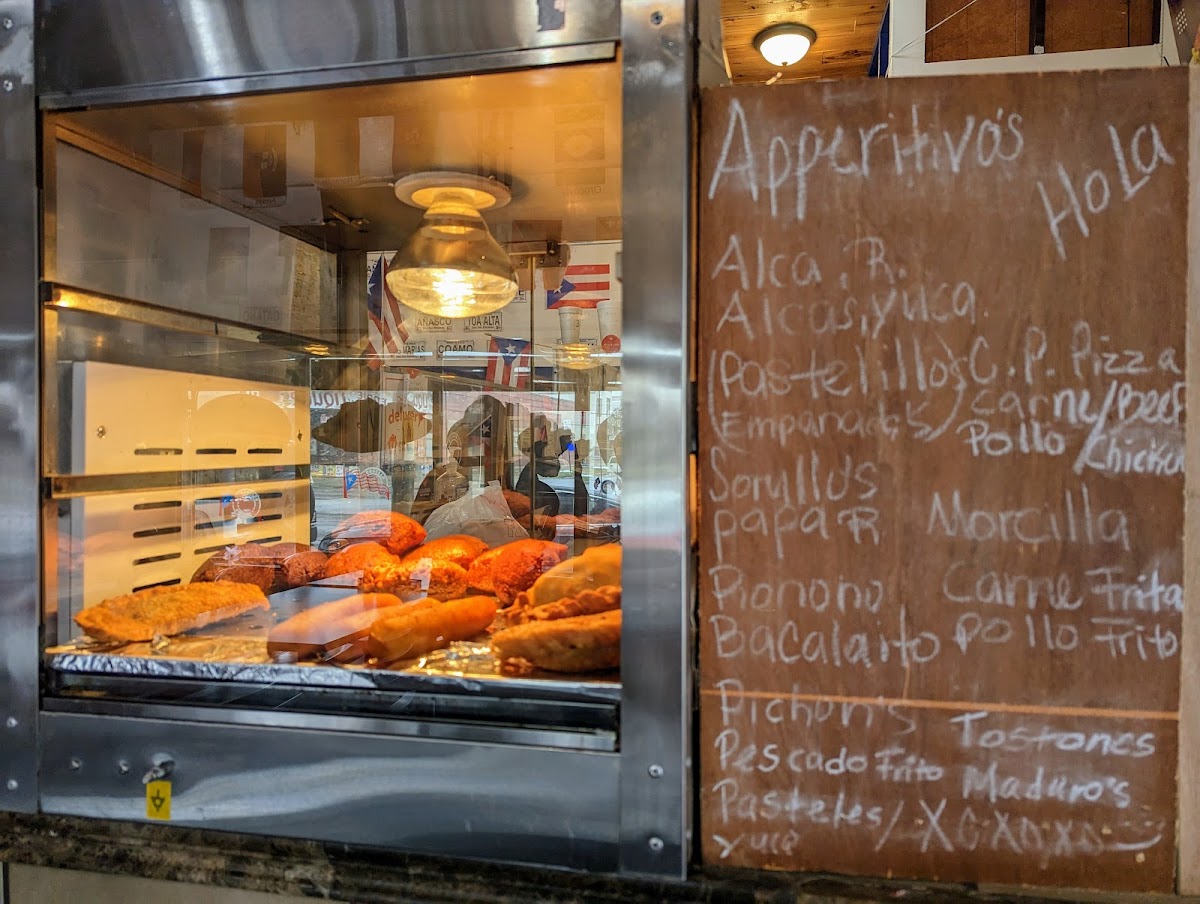 Apperitivo's
HoLa
Alca, R.
Alcas, yuca.
(Pastelillos C. P. Pizza
Empanadas) Carne/Beef
Pollo /Chicken
Soryllo's
papa R Morcilla
Pionono Carne Frita
Bacalaito pollo Frito
Pichon's Tostones
Pescado Frito Maduro's
Pasteles/ XOXOXO
yuca
AÑASCO
TOA ALTA
COAMO